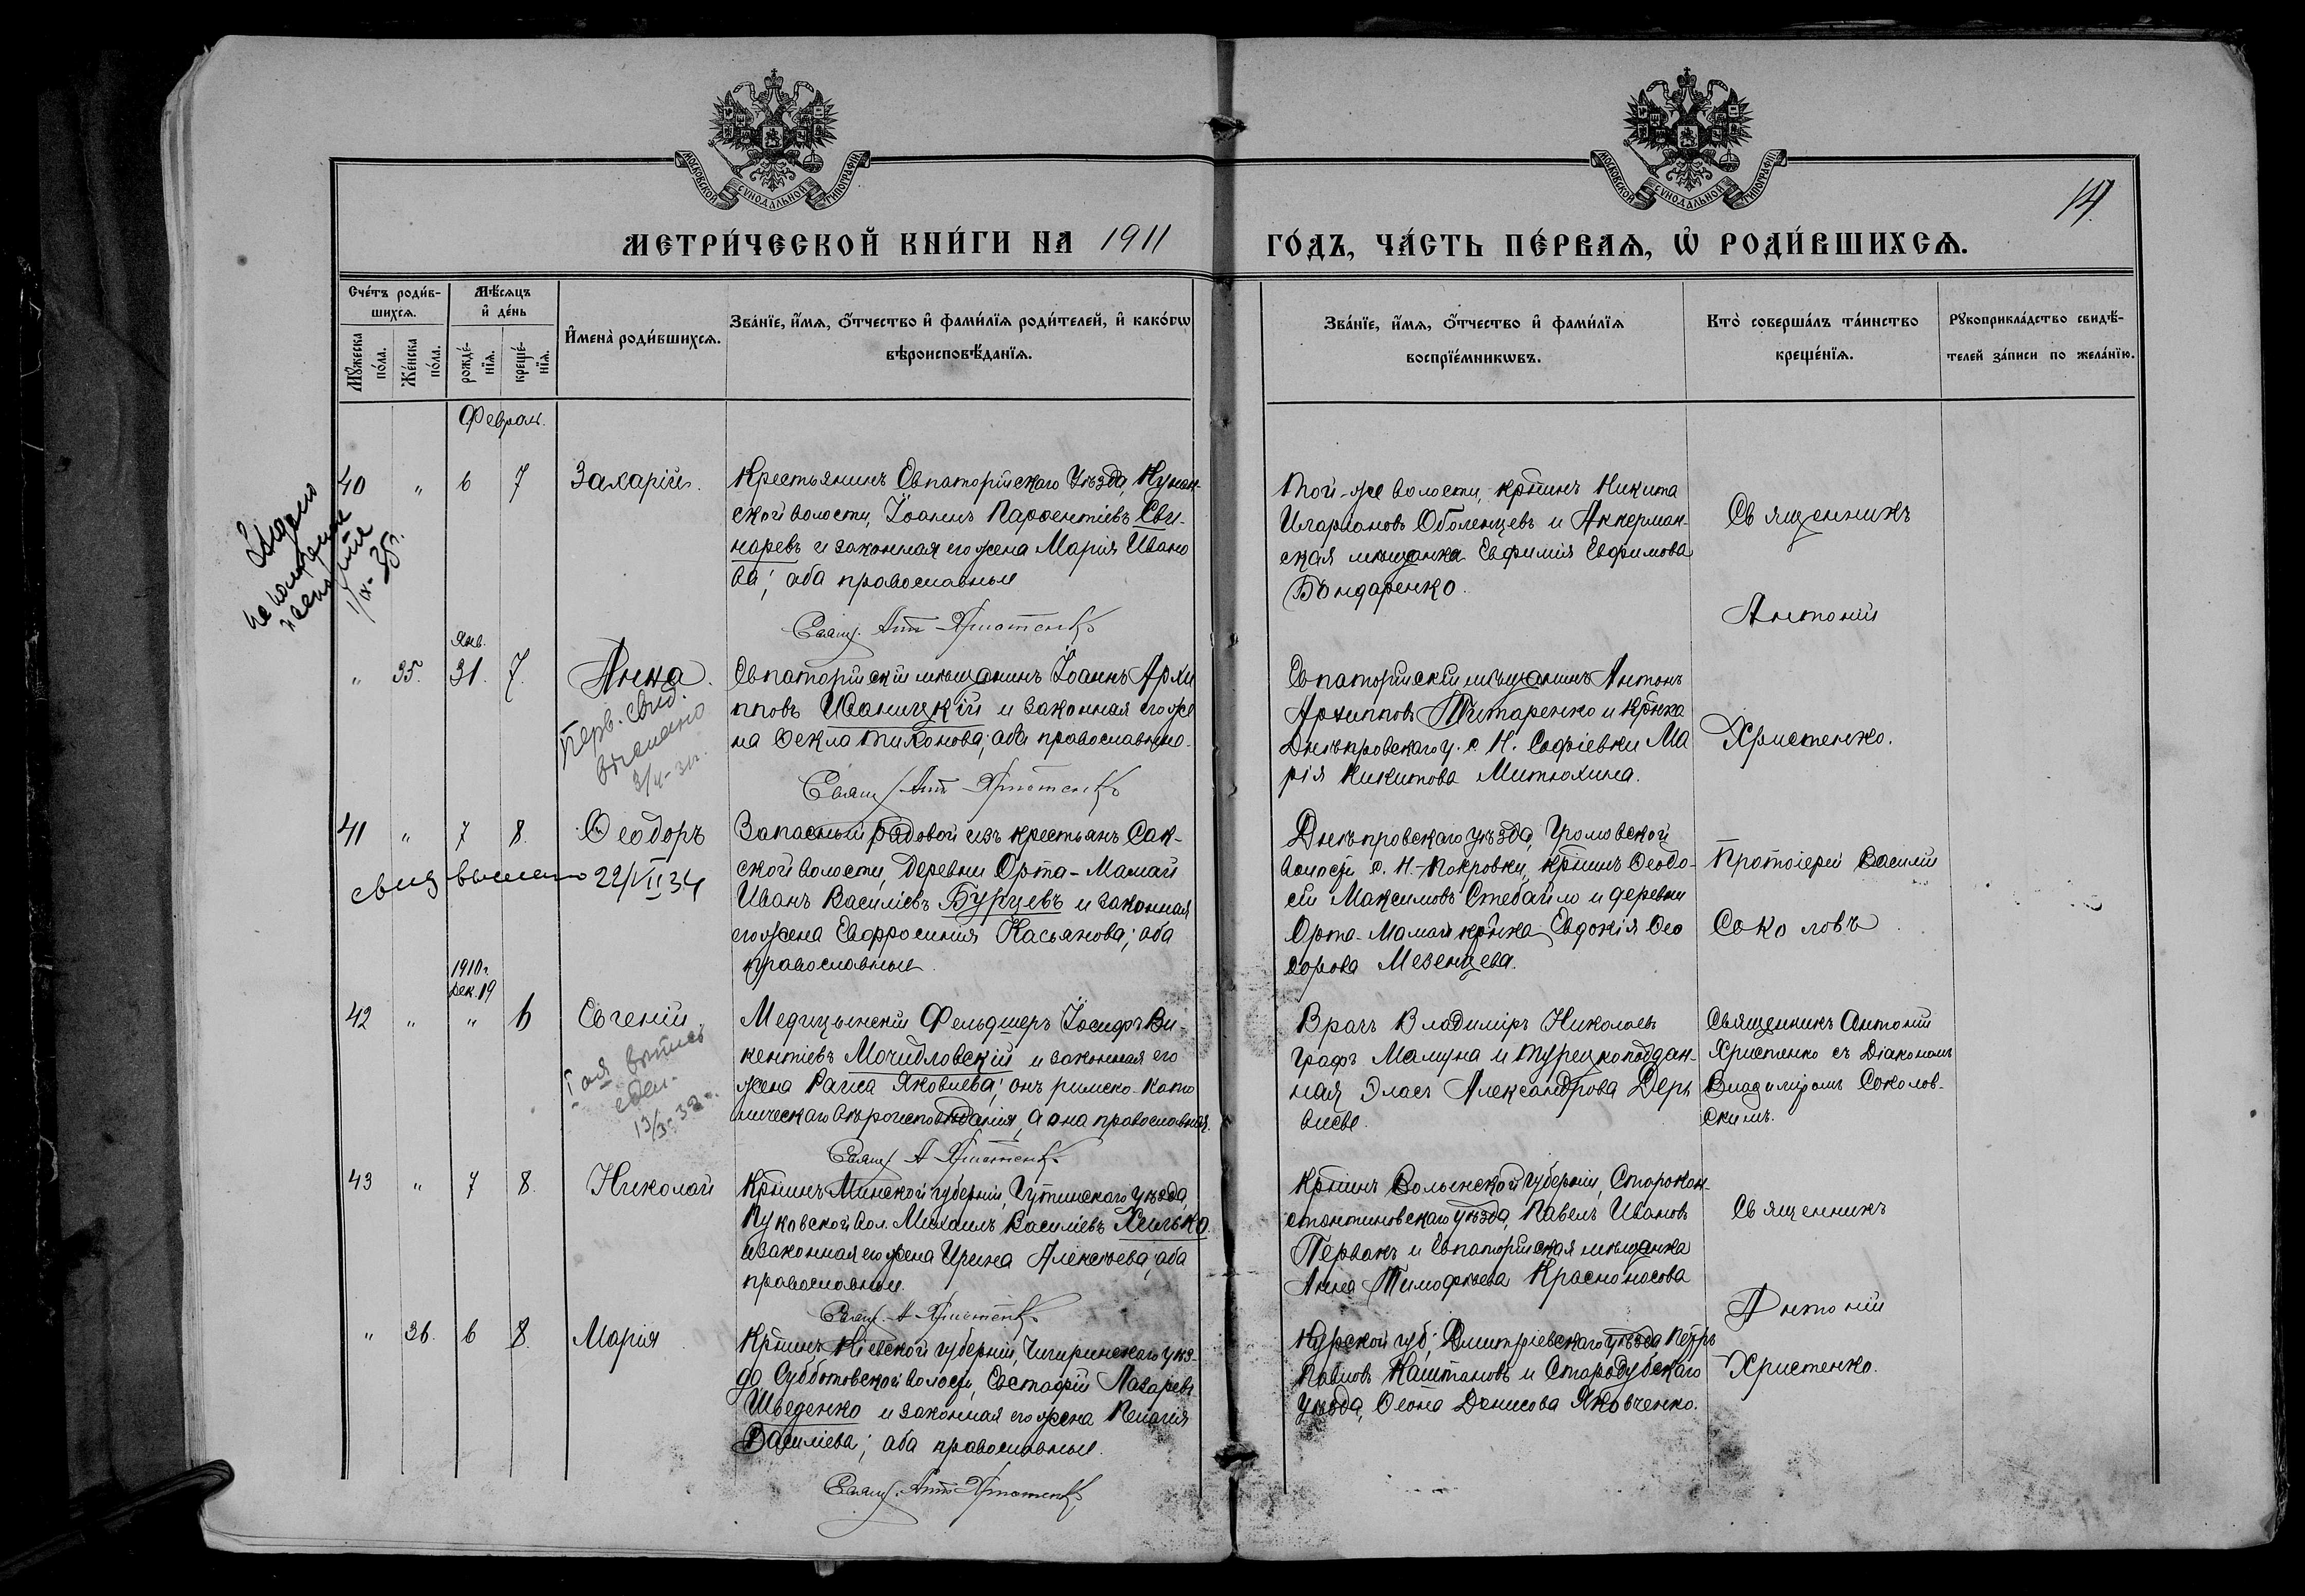 МОСКОВСКОЙ СѴНОДАЛЬНОЙ ТИПОГРАФІИ
МОСКОВСКОЙ СѴНОДАЛЬНОЙ ТИПОГРАФІИ
14.
МЕТРИ́ЧЕСКОЙ КНИ́ГИ НА 1911
ГО́ДЪ, ЧА́СТЬ ПЕ́РВАѦ, Ѡ҆ РОДИ́ВШИХСѦ.
Сче́тъ роди́в-
шихсѧ.
Мѣ́сѧцъ
и҆ де́нь
Мꙋ́жеска
по́ла.
Же́нска
по́ла.
рожде́-
нїѧ.
креще́-
нїѧ.
И҆мена̀ роди́вшихсѧ.
Зва́нїе, и҆́мѧ, ѻ҆́тчество и҆ фами́лїѧ роди́телей, и҆ како́гѡ
вѣроисповѣ́данїѧ.
Зва́нїе, и҆́мѧ, ѻ҆́тчество и҆ фами́лїѧ
воспрїе́мникѡвъ.
Кто̀ соверша́лъ та́инство
креще́нїѧ.
Рꙋкоприкла́дство свидѣ́-
телей за́писи по жела́нїю.
Феврал.
40 " 6 7 Захарій.
Крестьянинъ Евпаторійскаго Уѣзда, Кунан-
ской волости, Іоаннъ Парфентіевъ Сви-
наревъ и законная его жена Марія Ивано
ва; оба православные
Свящ. Ант. Христенко
Той-же волости, крѣнинъ Никита
Иларіоновъ Оболенцевъ и Аккерман-
ская мѣщанка Евфимія Евфимова
Бондаренко.
Священникъ
Антоній
Христенко.
1/IX-35г.
Янв.
" 35. 31. 7. Анна.
Перв. свид.
выслано
Евпаторійскій мѣщанинъ Іоаннъ Архи
пповъ Иваницкій и законная его же
на Ѳекла Тихонова; оба православные.
Свящ. Ант. Христенко
Евпаторійскій мѣщанинъ Антонъ
Архипповъ Титаренко и крѣнка
Днѣпровскаго у. с. Н. Софіевки Ма
рія Никитова Митюхина.
41 " 7 8. Ѳеодоръ
22/VII 34
Запасный рядовой изъ крестьянъ Сак-
ской волости, деревни Орта-Мамай
Иванъ Василіевъ Бурцевъ и законная
его жена Евфросинія Касьянова; оба
православные.
Днѣпровскаго уѣзда, Громовской
волости с. Н.-Покровки, крѣнинъ Ѳеодо-
сій Максимовъ Стебайло и деревни
Орта-Мамай крѣнка Евдокія Ѳео
дорова Мезенцева.
Протоіерей Василій
Соколовъ
1910 г.
Дек. 19
42 " " 6 Евгеній
Медицынскій Фельдшеръ Іосифъ Ви-
кентіевъ Мочидловскій и законная его
жена Раиса Яковлева; онъ римско-като
лическаго вѣроисповѣданія, а она православная.
Свящ. А Христенко.
Врачъ Владиміръ Николаевъ
графъ Мамуна и турецкоподдан-
ная Эласъ Александрова Дерь
Священникъ Антоній
Христенко съ Діакономъ
Владиміромъ Соколов-
скимъ.
43 " 7 8. Николай
Крѣнинъ Минской губерніи, Игуменскаго уѣзда,
Пуковской вол. Михаилъ Василіевъ Хилько
и законная его жена Ирина Алексѣева; оба
православные.
Свящ. А Христенко.
Крѣнинъ Волынской губерніи, Старокон-
стантиновскаго уѣзда, Павелъ Ивановъ
Первакъ и Евпаторійская мѣщанка
Анна Тимофѣева Красноносова
Священникъ
Антоній
Христенко.
" 36. 6 8. Марія
Крѣнинъ Кіевской губерніи, Чигиринскаго уѣз-
да Субботовской волости, Евстафій Лазаревъ
Шведенко и законная его жена Пелагія
Василіева; оба православные.
Свящ. Ант. Христенко
Курской губ; Дмитріевскаго уѣзда Петръ
Павловъ Каштановъ и Стародубскаго
уѣзда, Ѳеона Денисова Яковченко.